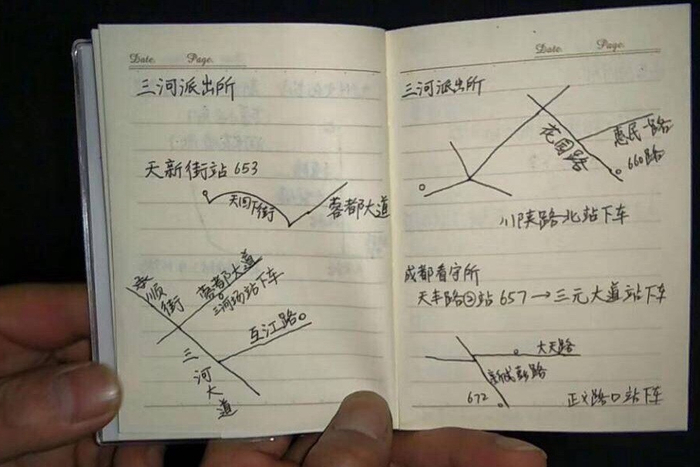 Date. Page.
三河派出所
天新街站 653
天回下街
蓉都大道
蓉都大道
三河场站下车
顺
街
互江路
三河大道
Date. Page.
三河派出所
花园路
惠民一路
660路
川陕路北站下车
成都看守所
天丰路②站 657→三元大道站下车
大天路
新成彭路
672
正义路口站下车